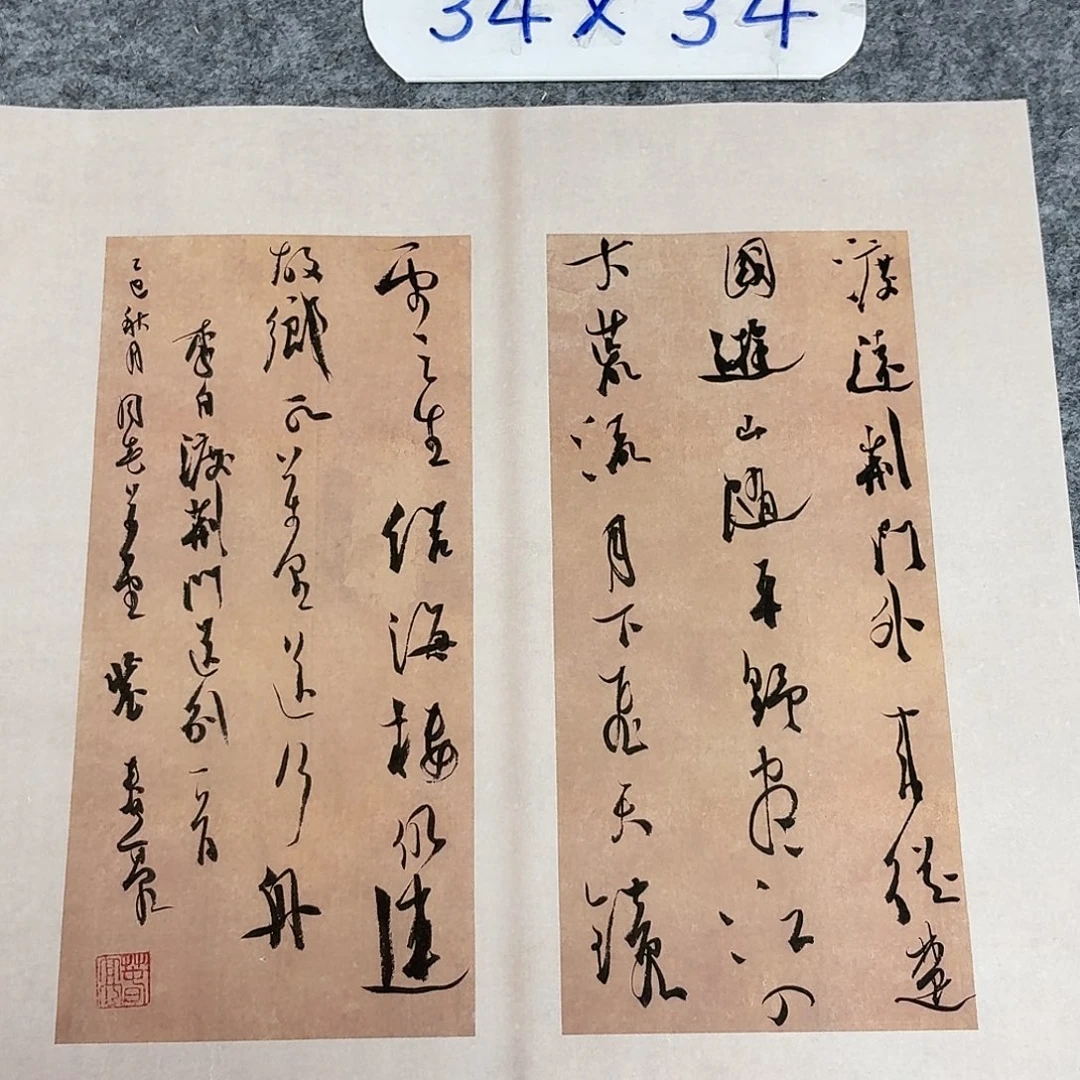 34 x 34
渡遠荆門外来從楚
國遊山隨平野盡江入
大荒流月下飛天鏡
雲生結海樓仍連
故鄉水萬里送行舟
李白渡荆門送別一首
乙巳秋月